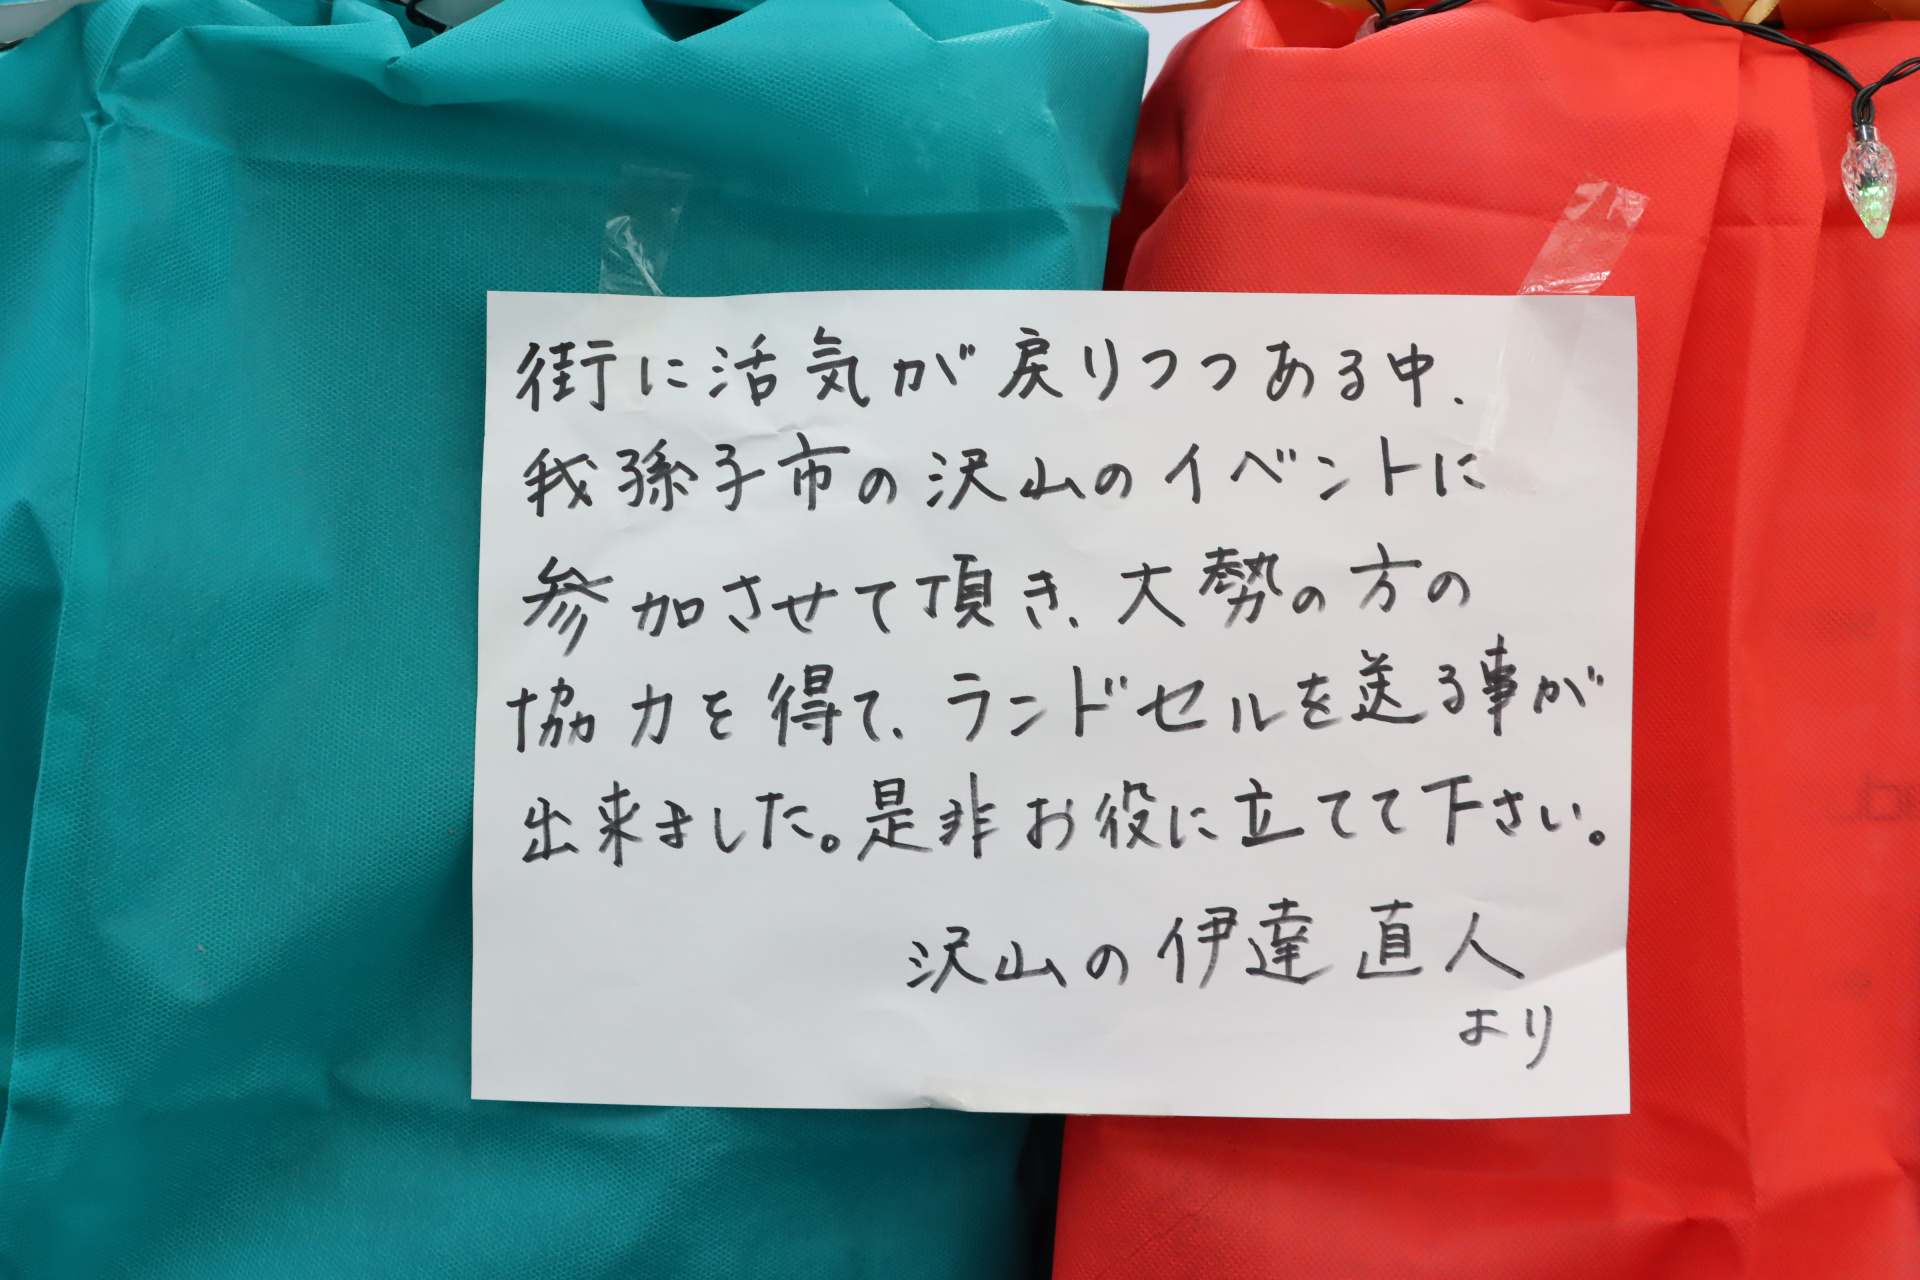 街に活気が戻りつつある中、
我孫子市の沢山のイベントに
参加させて頂き、大勢の方の
協力を得て、ランドセルを送る事が
出来ました。是非お役に立てて下さい。
沢山の伊達直人
より